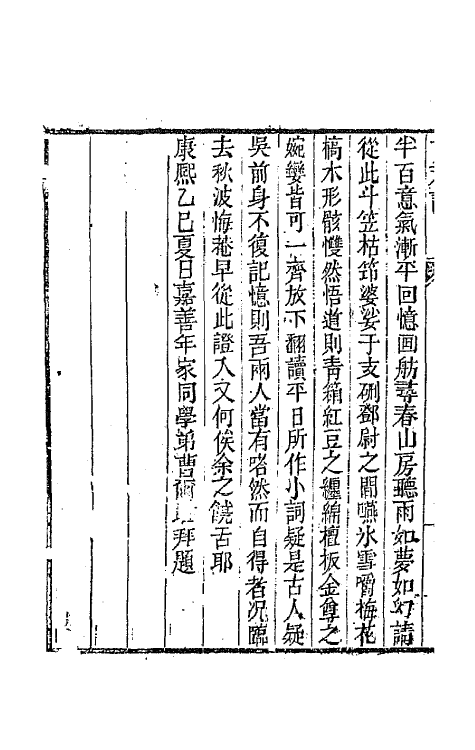 半百意氣漸平回憶画舫尋春山房聽雨如夢如幻請
從此斗笠枯筇婆娑于支硎鄧尉之間嚥氷雪嚼梅花
槁木形骸雙然悟道則靑箱紅豆之纏綿檀板金尊之
婉孌皆可一齊放下翻讀平日所作小詞疑是古人疑
吳前身不復記憶則吾兩人當有嗒然而自得者况臨
去秋波悔菴早從此證入又何俟余之饒舌耶
康熙乙巳夏日嘉善年家同學弟曹爾堪拜題